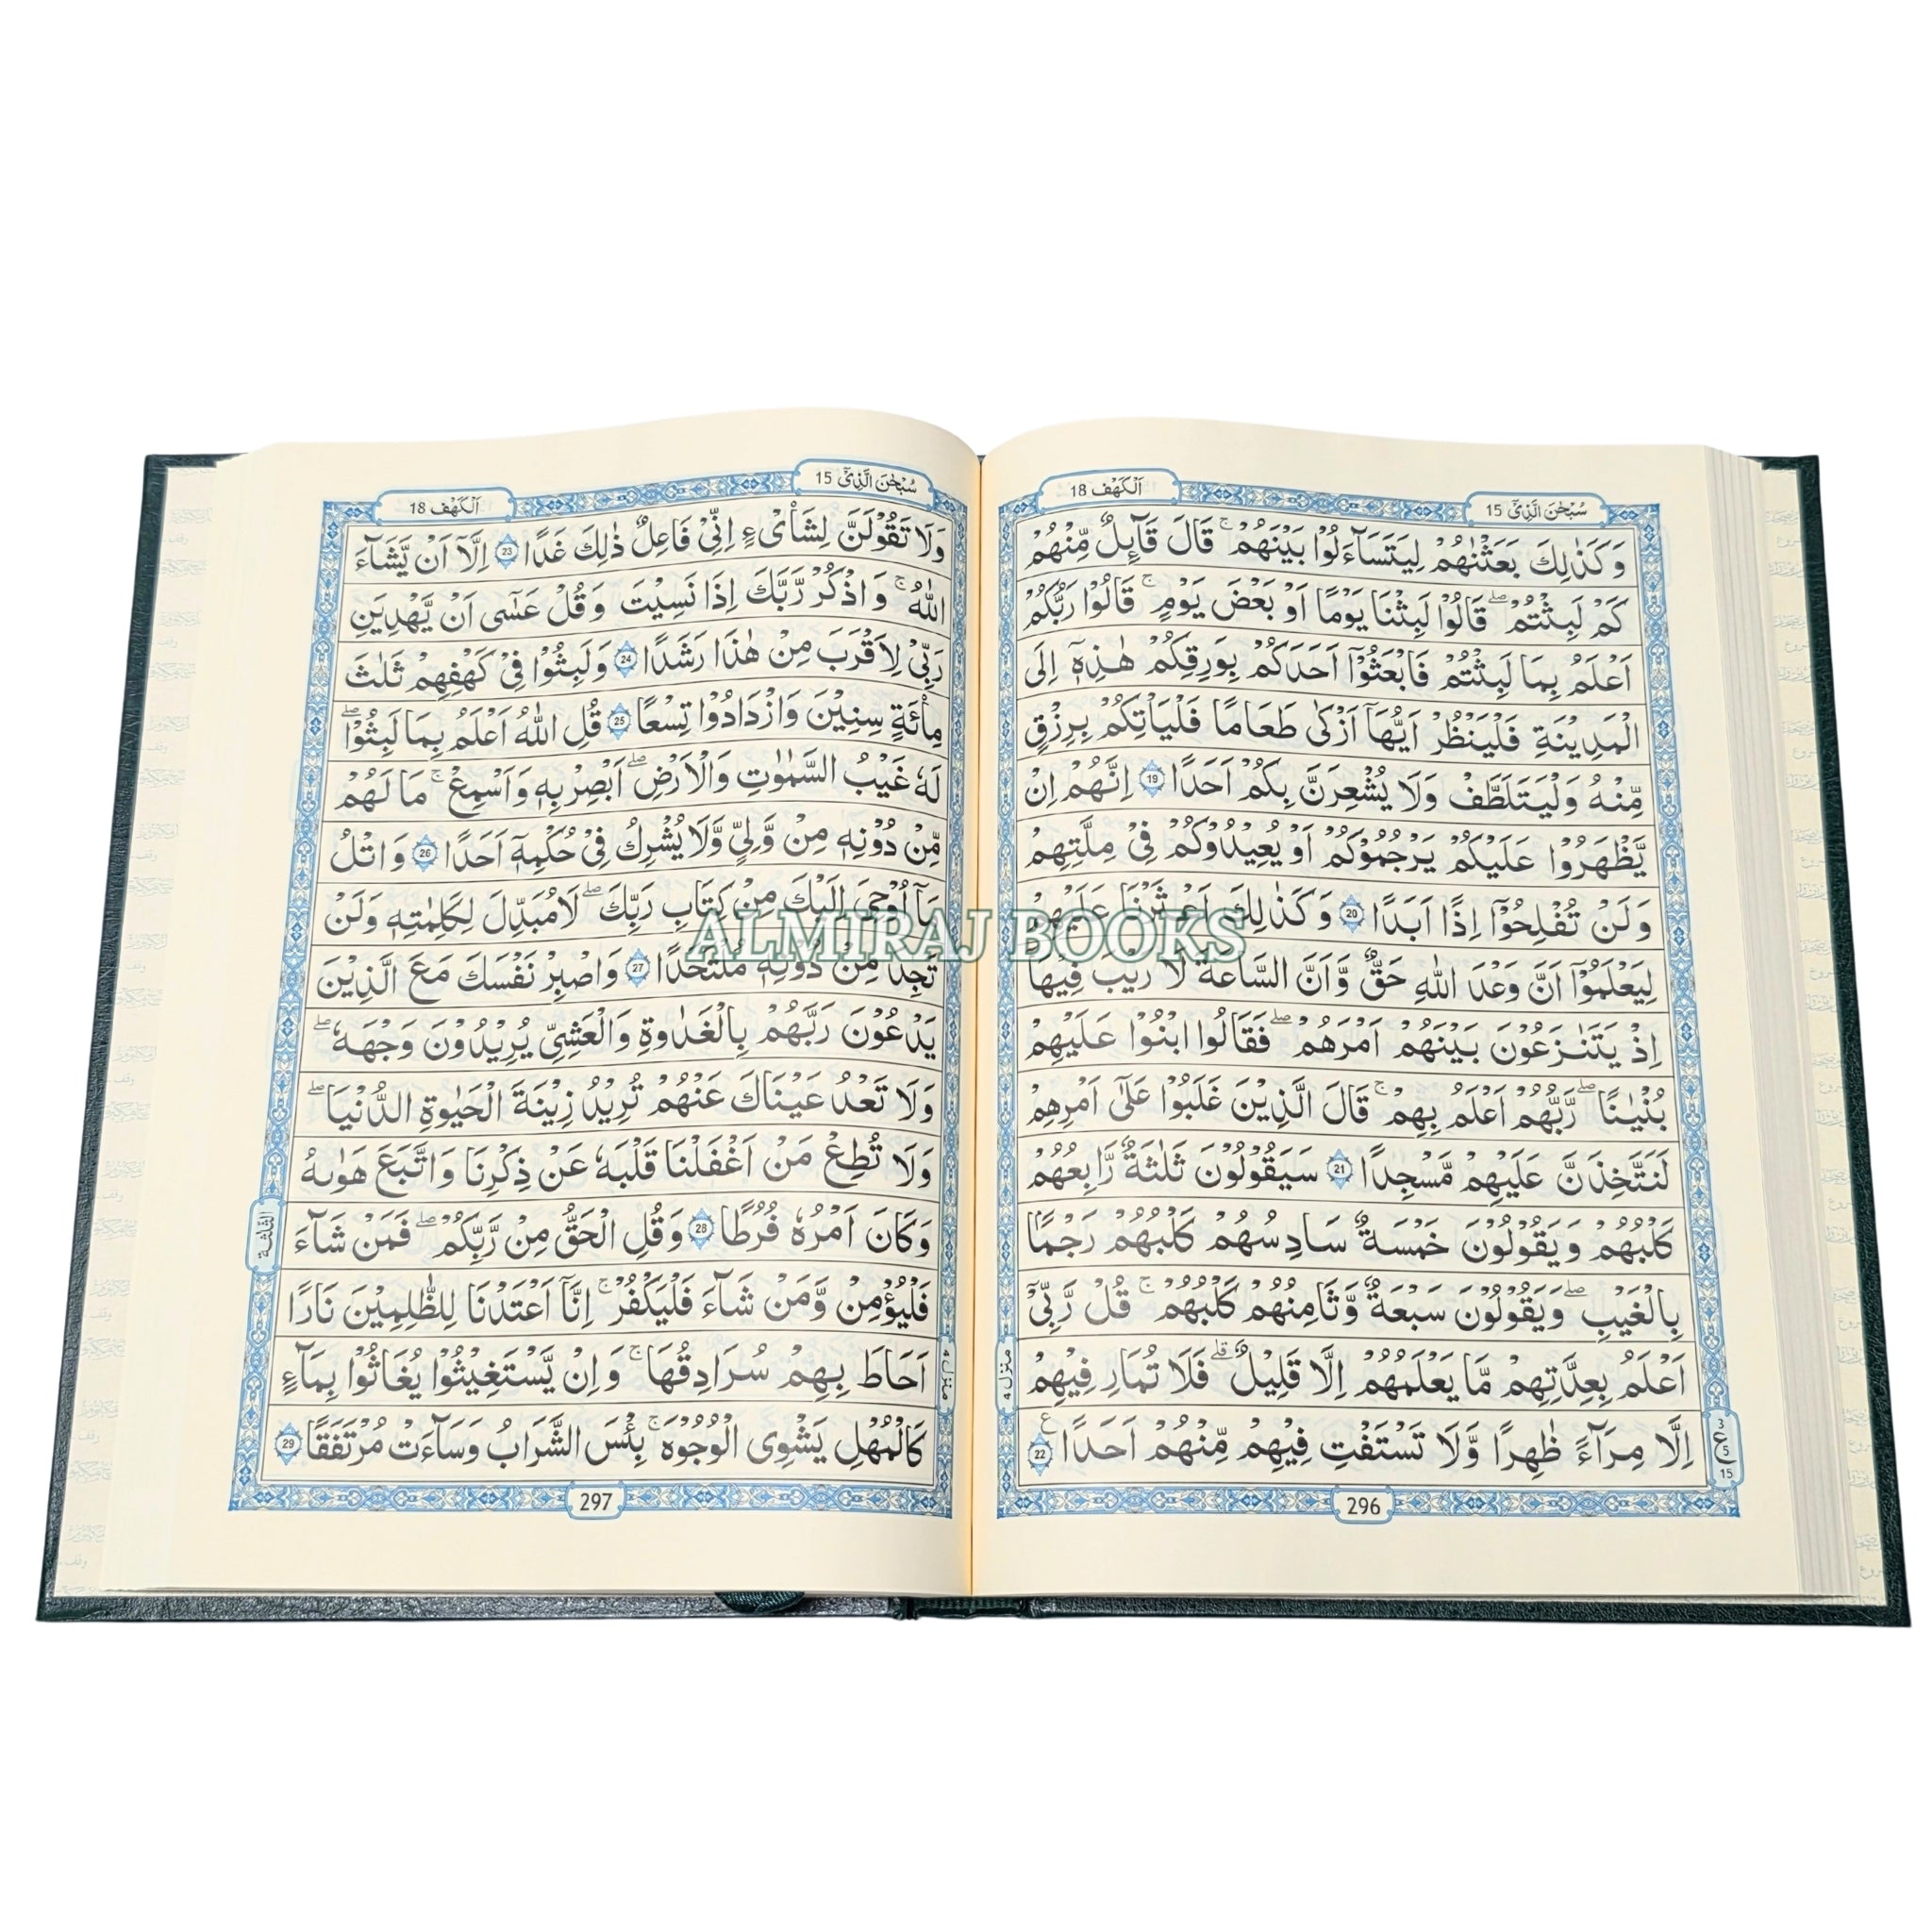 سُبْحٰنَ الَّذِىْٓ 15
اَلْكَهْف 18
وَكَذٰلِكَ بَعَثْنٰهُمْ لِيَتَسَآءَلُوْا بَيْنَهُمْ ۚ قَالَ قَآئِلٌ مِّنْهُمْ
كَمْ لَبِثْتُمْ ۖ قَالُوْا لَبِثْنَا يَوْمًا اَوْ بَعْضَ يَوْمٍ ۚ قَالُوْا رَبُّكُمْ
اَعْلَمُ بِمَا لَبِثْتُمْ فَابْعَثُوْٓا اَحَدَكُمْ بِوَرِقِكُمْ هٰذِهٖٓ اِلَى
الْمَدِيْنَةِ فَلْيَنْظُرْ اَيُّهَآ اَزْكٰى طَعَامًا فَلْيَاْتِكُمْ بِرِزْقٍ
مِّنْهُ وَلْيَتَلَطَّفْ وَلَا يُشْعِرَنَّ بِكُمْ اَحَدًا 19 اِنَّهُمْ اِنْ
يَّظْهَرُوْا عَلَيْكُمْ يَرْجُمُوْكُمْ اَوْ يُعِيْدُوْكُمْ فِىْ مِلَّتِهِمْ
وَلَنْ تُفْلِحُوْٓا اِذًا اَبَدًا 20 وَكَذٰلِكَ اَعْثَرْنَا عَلَيْهِمْ
لِيَعْلَمُوْٓا اَنَّ وَعْدَ اللّٰهِ حَقٌّ وَّاَنَّ السَّاعَةَ لَا رَيْبَ فِيْهَا
اِذْ يَتَنَازَعُوْنَ بَيْنَهُمْ اَمْرَهُمْ ۖ فَقَالُوا ابْنُوْا عَلَيْهِمْ
بُنْيَانًا ۖ رَّبُّهُمْ اَعْلَمُ بِهِمْ ۚ قَالَ الَّذِيْنَ غَلَبُوْا عَلٰٓى اَمْرِهِمْ
لَنَتَّخِذَنَّ عَلَيْهِمْ مَّسْجِدًا 21 سَيَقُوْلُوْنَ ثَلٰثَةٌ رَّابِعُهُمْ
كَلْبُهُمْ وَيَقُوْلُوْنَ خَمْسَةٌ سَادِسُهُمْ كَلْبُهُمْ رَجْمًا
بِالْغَيْبِ ۖ وَيَقُوْلُوْنَ سَبْعَةٌ وَّثَامِنُهُمْ كَلْبُهُمْ ۚ قُلْ رَّبِّىْٓ
اَعْلَمُ بِعِدَّتِهِمْ مَّا يَعْلَمُهُمْ اِلَّا قَلِيْلٌ ۗ فَلَا تُمَارِ فِيْهِمْ
اِلَّا مِرَآءً ظٰهِرًا وَّلَا تَسْتَفْتِ فِيْهِمْ مِّنْهُمْ اَحَدًا 22
3 ع 5 15
منزل ٤
296
سُبْحٰنَ الَّذِىْٓ 15
اَلْكَهْف 18
وَلَا تَقُوْلَنَّ لِشَاْىْءٍ اِنِّىْ فَاعِلٌ ذٰلِكَ غَدًا 23 اِلَّآ اَنْ يَّشَآءَ
اللّٰهُ ۚ وَاذْكُرْ رَّبَّكَ اِذَا نَسِيْتَ وَقُلْ عَسٰٓى اَنْ يَّهْدِيَنِ
رَبِّىْ لِاَقْرَبَ مِنْ هٰذَا رَشَدًا 24 وَلَبِثُوْا فِىْ كَهْفِهِمْ ثَلٰثَ
مِائَةٍ سِنِيْنَ وَازْدَادُوْا تِسْعًا 25 قُلِ اللّٰهُ اَعْلَمُ بِمَا لَبِثُوْا ۖ
لَهٗ غَيْبُ السَّمٰوٰتِ وَالْاَرْضِ ۖ اَبْصِرْ بِهٖ وَاَسْمِعْ ۚ مَا لَهُمْ
مِّنْ دُوْنِهٖ مِنْ وَّلِىٍّ وَّلَا يُشْرِكُ فِىْ حُكْمِهٖٓ اَحَدًا 26 وَاتْلُ
مَآ اُوْحِىَ اِلَيْكَ مِنْ كِتَابِ رَبِّكَ ۖ لَا مُبَدِّلَ لِكَلِمٰتِهٖ وَلَنْ
تَجِدَ مِنْ دُوْنِهٖ مُلْتَحَدًا 27 وَاصْبِرْ نَفْسَكَ مَعَ الَّذِيْنَ
يَدْعُوْنَ رَبَّهُمْ بِالْغَدٰوةِ وَالْعَشِىِّ يُرِيْدُوْنَ وَجْهَهٗ ۖ
وَلَا تَعْدُ عَيْنَاكَ عَنْهُمْ تُرِيْدُ زِيْنَةَ الْحَيٰوةِ الدُّنْيَا ۖ
وَلَا تُطِعْ مَنْ اَغْفَلْنَا قَلْبَهٗ عَنْ ذِكْرِنَا وَاتَّبَعَ هَوٰىهُ
وَكَانَ اَمْرُهٗ فُرُطًا 28 وَقُلِ الْحَقُّ مِنْ رَّبِّكُمْ ۖ فَمَنْ شَآءَ
فَلْيُؤْمِنْ وَّمَنْ شَآءَ فَلْيَكْفُرْ ۚ اِنَّآ اَعْتَدْنَا لِلظّٰلِمِيْنَ نَارًا
اَحَاطَ بِهِمْ سُرَادِقُهَا ۚ وَاِنْ يَّسْتَغِيْثُوْا يُغَاثُوْا بِمَآءٍ
كَالْمُهْلِ يَشْوِى الْوُجُوْهَ ۚ بِئْسَ الشَّرَابُ وَسَآءَتْ مُرْتَفَقًا 29
الثلثة
منزل ٤
297
ALMIRAJ BOOKS